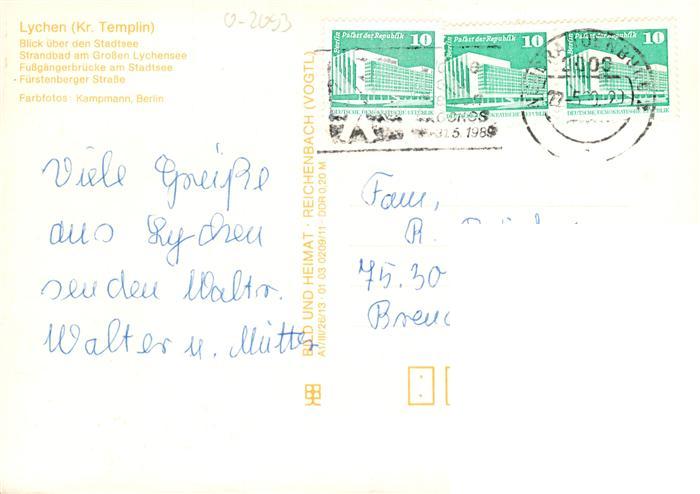 Lychen (Kr. Templin)
Blick über den Stadtsee
Strandbad am Großen Lychensee
Fußgängerbrücke am Stadtsee
Fürstenberger Straße
Farbfotos: Kampmann, Berlin
0-2093
Berlin Palast der Republik 10
DEUTSCHE DEMOKRATISCHE REPUBLIK
Berlin Palast der Republik 10
DEUTSCHE DEMOKRATISCHE REPUBLIK
Palast der Republik 10
DEUTSCHE DEMOKRATISCHE REPUBLIK
5.1989
BILD UND HEIMAT · REICHENBACH (VOGTL)
A1/III/26/13 · 01 03 0209/11 · DDR 0,20 M
Viele Greiße
aus Lychen
senden Waltr.
Walter u. Mutter
Fam,
R.
75.30
Bren